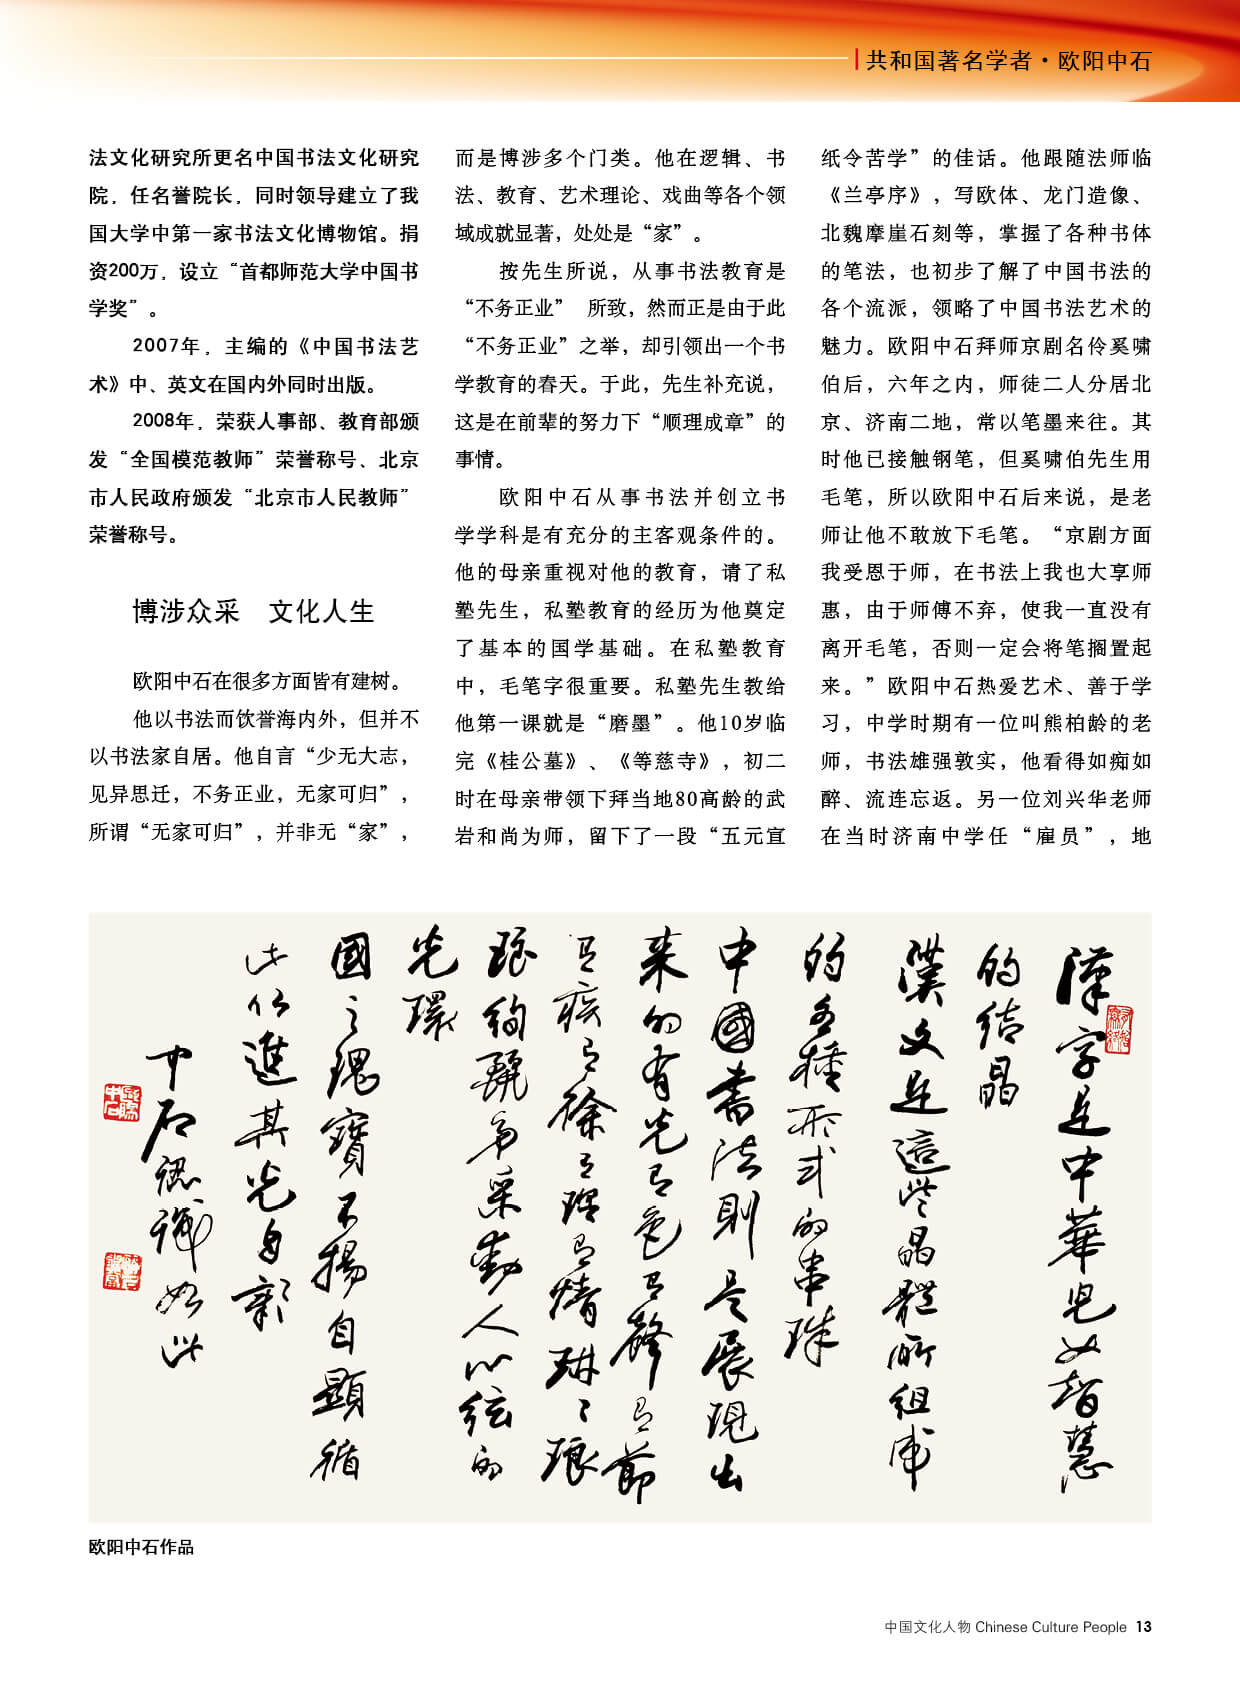 共和国著名学者·欧阳中石
法文化研究所更名中国书法文化研究
院，任名誉院长，同时领导建立了我
国大学中第一家书法文化博物馆。捐
资200万，设立“首都师范大学中国书
学奖”。
2007年，主编的《中国书法艺
术》中、英文在国内外同时出版。
2008年，荣获人事部、教育部颁
发“全国模范教师”荣誉称号、北京
市人民政府颁发“北京市人民教师”
荣誉称号。
博涉众采　文化人生
欧阳中石在很多方面皆有建树。
他以书法而饮誉海内外，但并不
以书法家自居。他自言“少无大志，
见异思迁，不务正业，无家可归”，
所谓“无家可归”，并非无“家”，
而是博涉多个门类。他在逻辑、书
法、教育、艺术理论、戏曲等各个领
域成就显著，处处是“家”。
按先生所说，从事书法教育是
“不务正业”　所致，然而正是由于此
“不务正业”之举，却引领出一个书
学教育的春天。于此，先生补充说，
这是在前辈的努力下“顺理成章”的
事情。
欧阳中石从事书法并创立书
学学科是有充分的主客观条件的。
他的母亲重视对他的教育，请了私
塾先生，私塾教育的经历为他奠定
了基本的国学基础。在私塾教育
中，毛笔字很重要。私塾先生教给
他第一课就是“磨墨”。他10岁临
完《桂公墓》、《等慈寺》，初二
时在母亲带领下拜当地80高龄的武
岩和尚为师，留下了一段“五元宣
纸令苦学”的佳话。他跟随法师临
《兰亭序》，写欧体、龙门造像、
北魏摩崖石刻等，掌握了各种书体
的笔法，也初步了解了中国书法的
各个流派，领略了中国书法艺术的
魅力。欧阳中石拜师京剧名伶奚啸
伯后，六年之内，师徒二人分居北
京、济南二地，常以笔墨来往。其
时他已接触钢笔，但奚啸伯先生用
毛笔，所以欧阳中石后来说，是老
师让他不敢放下毛笔。“京剧方面
我受恩于师，在书法上我也大享师
惠，由于师傅不弃，使我一直没有
离开毛笔，否则一定会将笔搁置起
来。”欧阳中石热爱艺术、善于学
习，中学时期有一位叫熊柏龄的老
师，书法雄强敦实，他看得如痴如
醉、流连忘返。另一位刘兴华老师
在当时济南中学任“雇员”，地
漢字是中華民族智慧
的结晶
漢文是這些晶體所组成
的各種形式的串珠
中國書法則是展現出
来的有光有色有聲有節
有疾有徐有理有情琳琳琅
琅绚麗多采動人心弦的
光環
國之瑰寶不揚自顯循
此以進其光自新
中石認識如此
欧阳中石作品
中国文化人物 Chinese Culture People 13